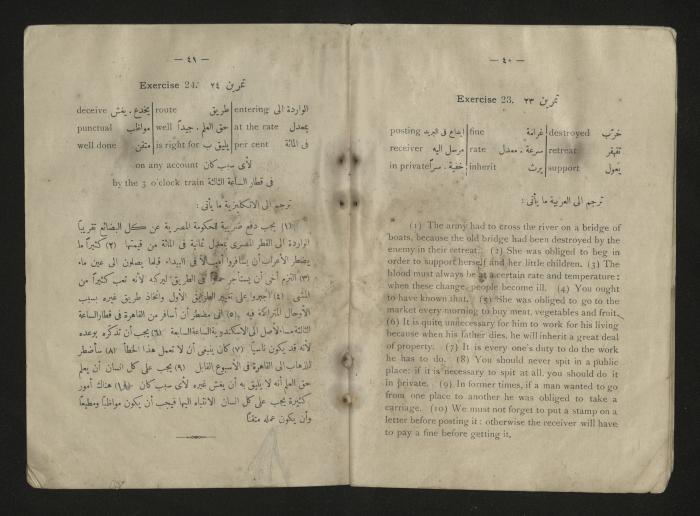 — ٤٠ —
Exercise 23. تمرين ٢٣
posting ايداع فى البريد fine غرامة destroyed خرّب
receiver مرسل اليه rate سرعة . معدل retreat تقهقر
in private خفية . سراً inherit يرث support يعول
ترجم الى العربية ما يأتى :
(1) The army had to cross the river on a bridge of
boats, because the old bridge had been destroyed by the
enemy in their retreat. (2) She was obliged to beg in
order to support herself and her little children. (3) The
blood must always be at a certain rate and temperature :
when these change, people become ill. (4) You ought
to have known that. (5) She was obliged to go to the
market every morning to buy meat, vegetables and fruit.
(6) It is quite unnecessary for him to work for his living
because when his father dies, he will inherit a great deal
of property. (7) It is every one's duty to do the work
he has to do. (8) You should never spit in a public
place: if it is necessary to spit at all, you should do it
in private. (9) In former times, if a man wanted to go
from one place to another he was obliged to take a
carriage. (10) We must not forget to put a stamp on a
letter before posting it : otherwise the receiver will have
to pay a fine before getting it.
— ٤١ —
Exercise 24. تمرين ٢٤
deceive يخدع . يغش route طريق entering الواردة الى
punctual مواظب well حق العلم . جيداً at the rate بمعدل
well done متقن is right for يليق ب per cent فى المائة
on any account لأى سبب كان
by the 3 o'clock train فى قطار الساعة الثالثة
ترجم الى الانكليزية ما يأتى :
(١) يجب دفع ضريبة للحكومة المصرية عن كل البضائع تقريباً
الواردة الى القطر المصرى بمعدل ثمانية فى المائة من قيمتها (٢) كثيراً ما
يضطر الأعراب أن يسافروا أميالاً فى البيداء قبلما يصلون الى عين ماء
(٣) التزم أخى أن يستأجر حماراً فى الطريق ليركبه لأنه تعب كثيراً من
المشى (٤) اجبروا على تغيير الطريق الأول واتخاذ طريق غيره بسبب
الأوحال المتراكمة فيه (٥) انى مضطر أن أسافر من القاهرة فى قطار الساعة
الثالثة مساء لأصل الى الاسكندرية الساعة السابعة (٦) يجب أن تذكّره بوعده
لأنه قد يكون ناسياً (٧) كان ينبغى أن لا تعمل هذا الخطأ (٨) سأضطر
للذهاب الى القاهرة فى الأسبوع القابل (٩) يجب على كل انسان أن يعلم
حق العلم أنه لا يليق به أن يغش غيره لأى سبب كان (١٠) هناك أمور
كثيرة يجب على كل انسان الانتباه اليها فيجب أن يكون مواظباً ومطيعاً
وأن يكون عمله متقناً